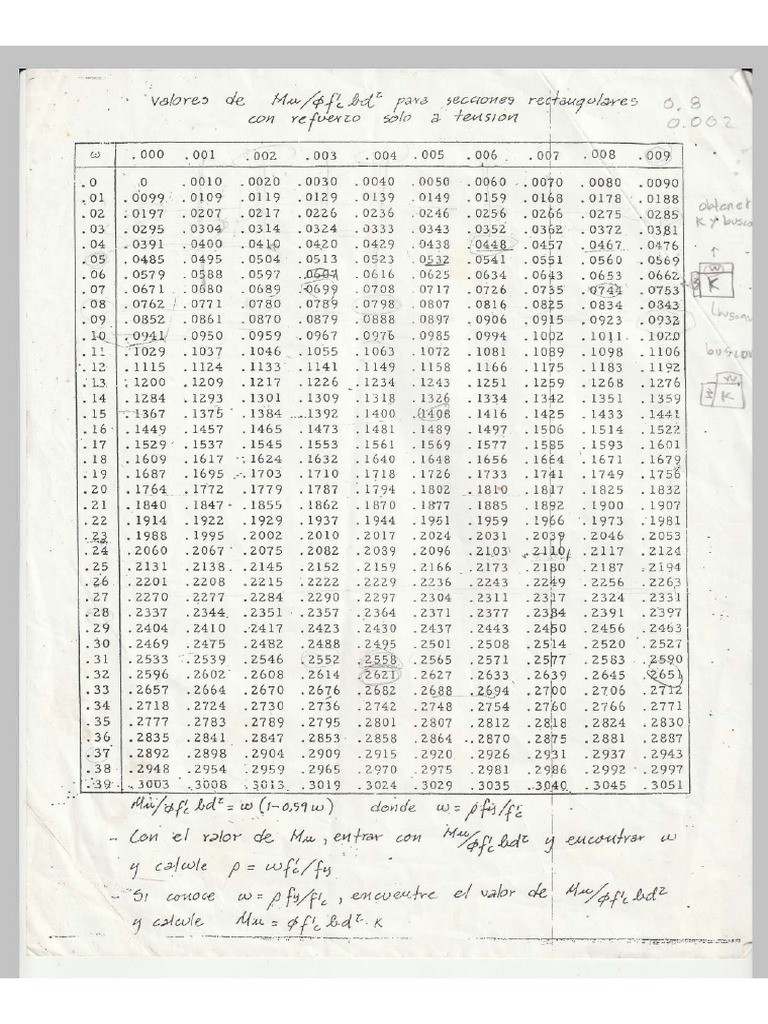 Valores de Mu/φf'c bd² para secciones rectangulares
con refuerzo solo a tension
0.8
0.002
ω .000 .001 .002 .003 .004 .005 .006 .007 .008 .009
.0 0 .0010 .0020 .0030 .0040 .0050 .0060 .0070 .0080 .0090
.01 .0099 .0109 .0119 .0129 .0139 .0149 .0159 .0168 .0178 .0188
.02 .0197 .0207 .0217 .0226 .0236 .0246 .0256 .0266 .0275 .0285
.03 .0295 .0304 .0314 .0324 .0333 .0343 .0352 .0362 .0372 .0381
.04 .0391 .0400 .0410 .0420 .0429 .0438 .0448 .0457 .0467 .0476
.05 .0485 .0495 .0504 .0513 .0523 .0532 .0541 .0551 .0560 .0569
.06 .0579 .0588 .0597 .0607 .0616 .0625 .0634 .0643 .0653 .0662
.07 .0671 .0680 .0689 .0699 .0708 .0717 .0726 .0735 .0744 .0753
.08 .0762 .0771 .0780 .0789 .0798 .0807 .0816 .0825 .0834 .0843
.09 .0852 .0861 .0870 .0879 .0888 .0897 .0906 .0915 .0923 .0932
.10 .0941 .0950 .0959 .0967 .0976 .0985 .0994 .1002 .1011 .1020
.11 .1029 .1037 .1046 .1055 .1063 .1072 .1081 .1089 .1098 .1106
.12 .1115 .1124 .1133 .1141 .1149 .1158 .1166 .1175 .1183 .1192
.13 .1200 .1209 .1217 .1226 .1234 .1243 .1251 .1259 .1268 .1276
.14 .1284 .1293 .1301 .1309 .1318 .1326 .1334 .1342 .1351 .1359
.15 .1367 .1375 .1384 .1392 .1400 .1408 .1416 .1425 .1433 .1441
.16 .1449 .1457 .1465 .1473 .1481 .1489 .1497 .1506 .1514 .1522
.17 .1529 .1537 .1545 .1553 .1561 .1569 .1577 .1585 .1593 .1601
.18 .1609 .1617 .1624 .1632 .1640 .1648 .1656 .1664 .1671 .1679
.19 .1687 .1695 .1703 .1710 .1718 .1726 .1733 .1741 .1749 .1756
.20 .1764 .1772 .1779 .1787 .1794 .1802 .1810 .1817 .1825 .1832
.21 .1840 .1847 .1855 .1862 .1870 .1877 .1885 .1892 .1900 .1907
.22 .1914 .1922 .1929 .1937 .1944 .1951 .1959 .1966 .1973 .1981
.23 .1988 .1995 .2002 .2010 .2017 .2024 .2031 .2039 .2046 .2053
.24 .2060 .2067 .2075 .2082 .2089 .2096 .2103 .2110 .2117 .2124
.25 .2131 .2138 .2145 .2152 .2159 .2166 .2173 .2180 .2187 .2194
.26 .2201 .2208 .2215 .2222 .2229 .2236 .2243 .2249 .2256 .2263
.27 .2270 .2277 .2284 .2290 .2297 .2304 .2311 .2317 .2324 .2331
.28 .2337 .2344 .2351 .2357 .2364 .2371 .2377 .2384 .2391 .2397
.29 .2404 .2410 .2417 .2423 .2430 .2437 .2443 .2450 .2456 .2463
.30 .2469 .2475 .2482 .2488 .2495 .2501 .2508 .2514 .2520 .2527
.31 .2533 .2539 .2546 .2552 .2558 .2565 .2571 .2577 .2583 .2590
.32 .2596 .2602 .2608 .2614 .2621 .2627 .2633 .2639 .2645 .2651
.33 .2657 .2664 .2670 .2676 .2682 .2688 .2694 .2700 .2706 .2712
.34 .2718 .2724 .2730 .2736 .2742 .2748 .2754 .2760 .2766 .2771
.35 .2777 .2783 .2789 .2795 .2801 .2807 .2812 .2818 .2824 .2830
.36 .2835 .2841 .2847 .2853 .2858 .2864 .2870 .2875 .2881 .2887
.37 .2892 .2898 .2904 .2909 .2915 .2920 .2926 .2931 .2937 .2943
.38 .2948 .2954 .2959 .2965 .2970 .2975 .2981 .2986 .2992 .2997
.39 .3003 .3008 .3013 .3019 .3024 .3029 .3035 .3040 .3045 .3051
obtener
K y busco
w
K
busco
w
K
Mu/φf'c bd² = ω (1-0.59ω) donde ω = ρ fy/f'c
- Con el valor de Mu, entrar con Mu/φf'c bd² y encontrar ω
y calcule ρ = ωf'c/fy
- Si conoce ω = ρ fy/f'c, encuentre el valor de Mu/φf'c bd²
y calcule Mu = φf'c bd². K